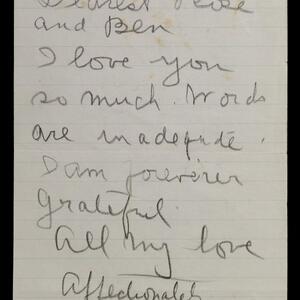 Dearest Rose
and Ben
I love you
so much. Words
are inadequate.
I am forever
grateful.
All my love
Affectionately